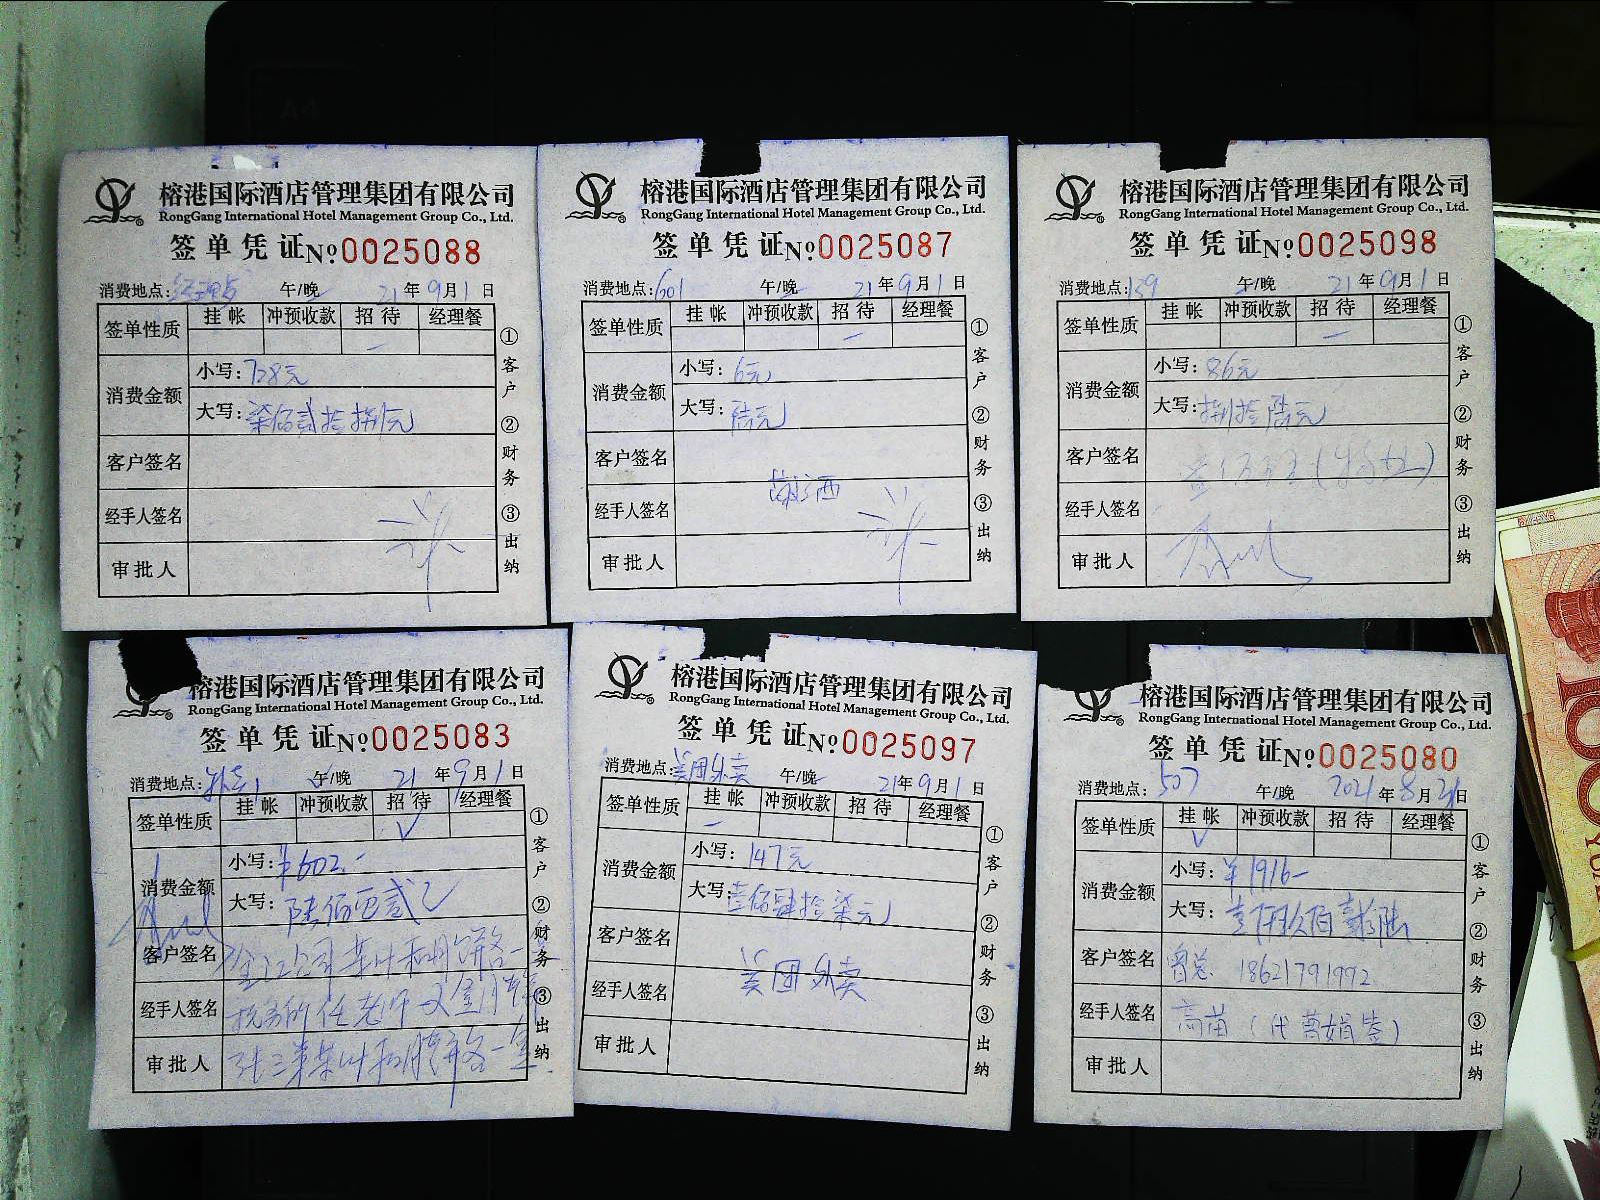 榕港国际酒店管理集团有限公司
RongGang International Hotel Management Group Co., Ltd.
签单凭证 №0025088
消费地点: 午/晚 21年9月1日
签单性质 挂帐 冲预收款 招待 经理餐
消费金额 小写:728元
大写:柒佰贰拾捌元
客户签名
经手人签名
审批人
①客户 ②财务 ③出纳
榕港国际酒店管理集团有限公司
RongGang International Hotel Management Group Co., Ltd.
签单凭证 №0025087
消费地点:601 午/晚 21年9月1日
签单性质 挂帐 冲预收款 招待 经理餐
消费金额 小写:6元
大写:陆元
客户签名
经手人签名
审批人
①客户 ②财务 ③出纳
榕港国际酒店管理集团有限公司
RongGang International Hotel Management Group Co., Ltd.
签单凭证 №0025098
消费地点:139 午/晚 21年9月1日
签单性质 挂帐 冲预收款 招待 经理餐
消费金额 小写:86元
大写:捌拾陆元
客户签名
经手人签名
审批人
①客户 ②财务 ③出纳
榕港国际酒店管理集团有限公司
RongGang International Hotel Management Group Co., Ltd.
签单凭证 №0025083
消费地点: 午/晚 21年9月1日
签单性质 挂帐 冲预收款 招待 √ 经理餐
消费金额 小写:¥602.-
大写:陆佰零贰元
客户签名 金江公司茶叶和月饼各一
经手人签名 税务所任老师
审批人 张三第茶叶和月饼各一盒.
①客户 ②财务 ③出纳
榕港国际酒店管理集团有限公司
RongGang International Hotel Management Group Co., Ltd.
签单凭证 №0025097
消费地点:美团外卖 午/晚 21年9月1日
签单性质 挂帐 冲预收款 招待 经理餐
消费金额 小写:147元
大写:壹佰肆拾柒元
客户签名
美团外卖
经手人签名
审批人
①客户 ②财务 ③出纳
榕港国际酒店管理集团有限公司
RongGang International Hotel Management Group Co., Ltd.
签单凭证 №0025080
消费地点:507 午/晚 2021年8月21日
签单性质 挂帐 √ 冲预收款 招待 经理餐
消费金额 小写:¥1916-
大写:壹仟玖佰壹拾陆
客户签名 曾总 18621791992
经手人签名 高苗(代 萬娟 签)
审批人
①客户 ②财务 ③出纳
100